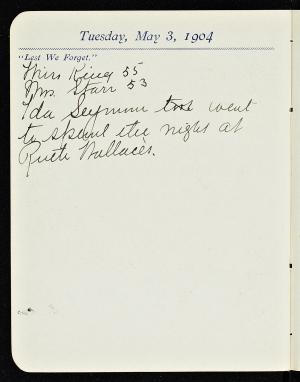 Tuesday, May 3, 1904
"Lest We Forget."
Miss King 55
Mrs. Starr 53
Ida Seymour took went
to spend the night at
Ruth Wallace's.